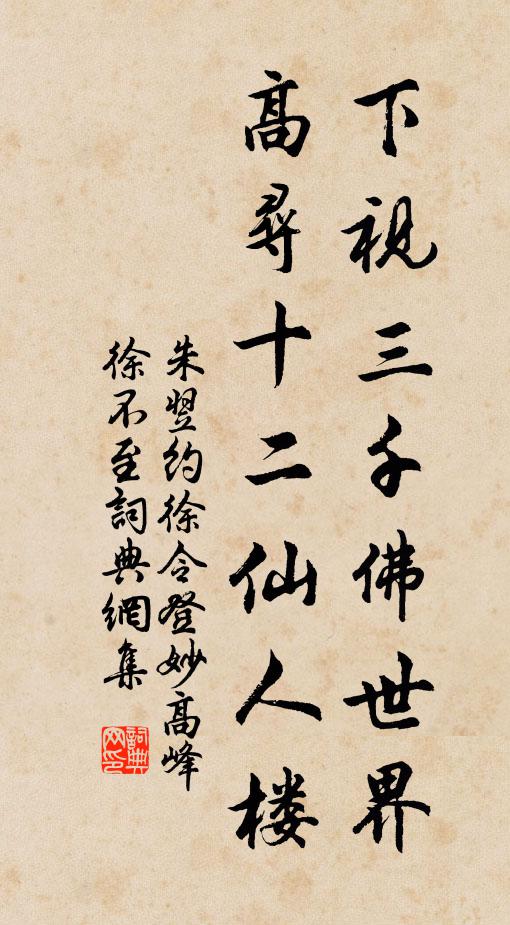 下視三千佛世界
高尋十二仙人楼
朱翌約徐令登妙高峰
徐不至詞典網集
詞典
网印